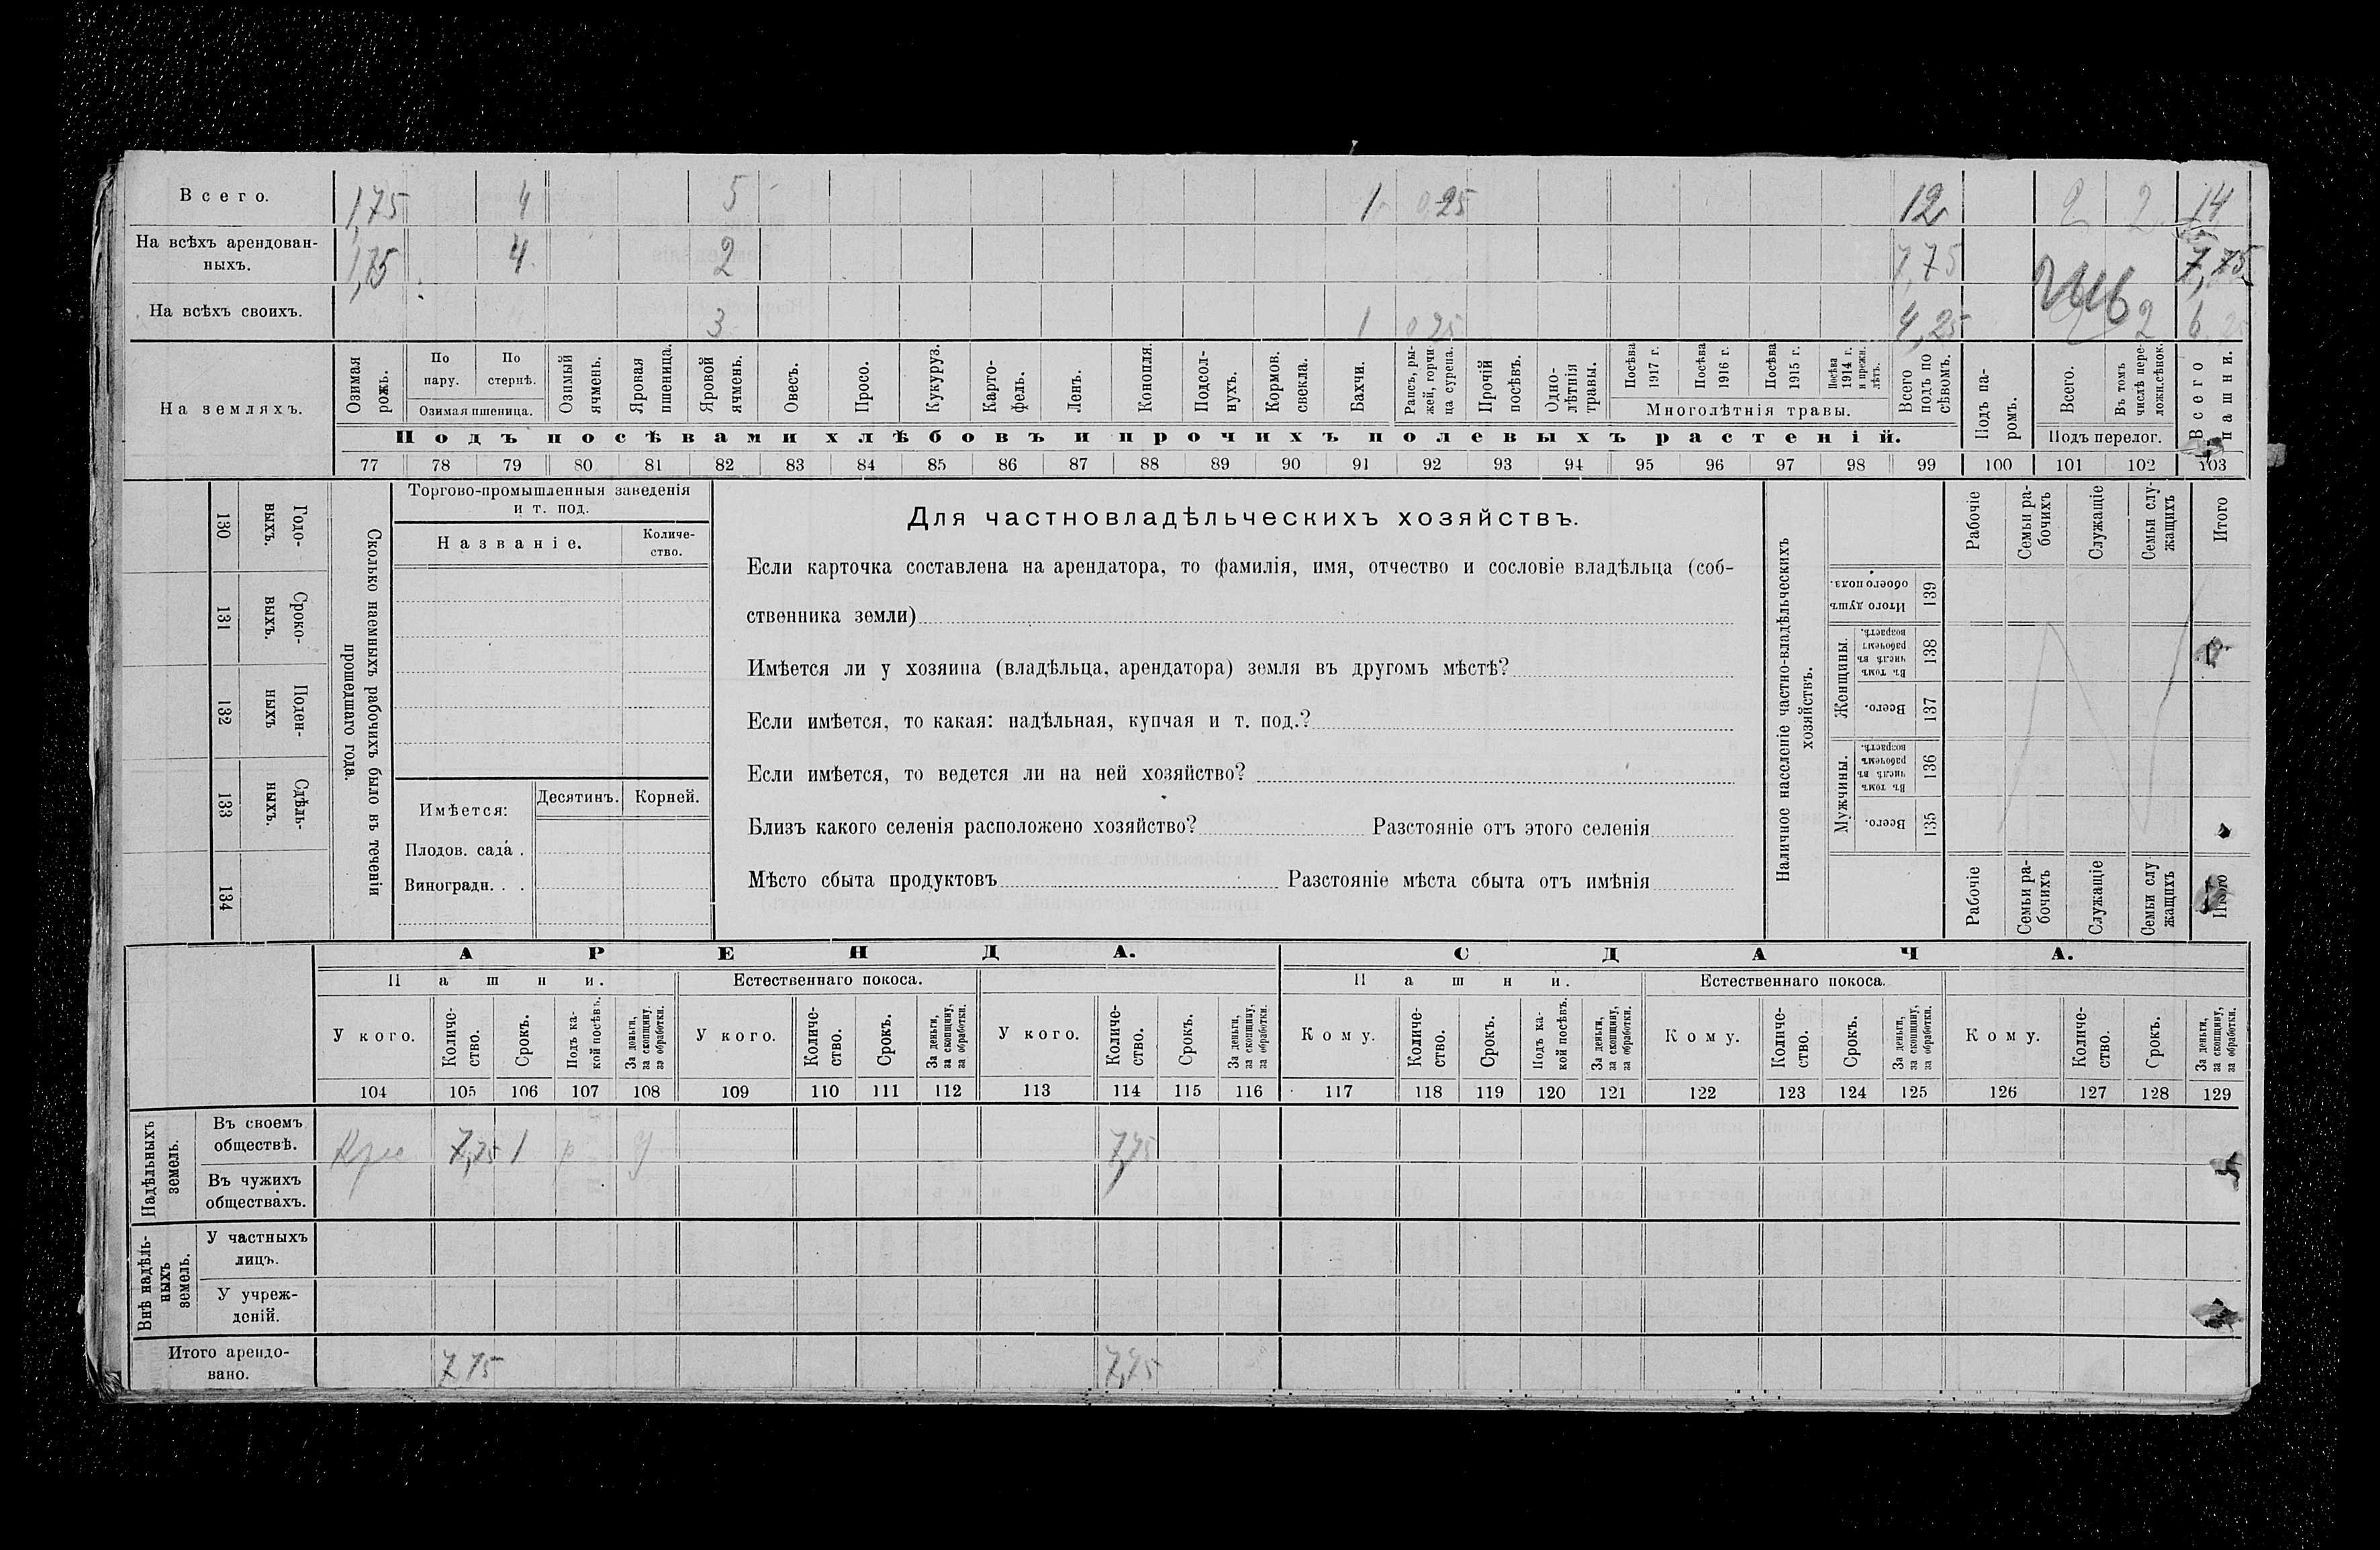 Всего. 1,75 4 5 1 0,25 12 2 2 14
На всѣхъ арендован-
ныхъ. 1,75 4 2 7,75 7,75
На всѣхъ своихъ. 3 1 0,25 4,25 2 2 6,25
На земляхъ.
Озимая рожь.
По пару.
По стернѣ.
Озимая пшеница.
Озимый ячмень.
Яровая пшеница.
Яровой ячмень.
Овесъ.
Просо.
Кукуруз.
Карто-
фель.
Ленъ.
Конопля.
Подсол-
нухъ.
Кормов.
свекла.
Бахчи.
Рапсъ, ры-
жей, горчи
ца сурепа.
Прочій
посѣвъ.
Одно-
лѣтнія
травы.
Посѣва
1917 г.
Посѣва
1916 г.
Посѣва
1915 г.
Посѣва
1914 г.
и прежн.
лѣтъ.
Многолѣтнія травы.
Всего
подъ по
сѣвомъ.
Подъ па-
ромъ.
Всего.
Въ томъ
числѣ пере-
ложн.сѣнок.
Подъ перелог.
Всего
пашни.
Подъ посѣвами хлѣбовъ и прочихъ полевыхъ растеній.
77 78 79 80 81 82 83 84 85 86 87 88 89 90 91 92 93 94 95 96 97 98 99 100 101 102 103
130 Годо-
выхъ.
131 Сроко-
выхъ.
132 Поден-
ныхъ
133 Сдѣль-
ныхъ.
134
Сколько наемныхъ рабочихъ было въ теченіи
прошедшаго года.
Торгово-промышленныя заведенія
и т. под.
Названіе.
Количе-
ство.
Имѣется:
Десятинъ. Корней.
Плодов. сада .
Виноградн. . .
Для частновладѣльческихъ хозяйствъ.
Если карточка составлена на арендатора, то фамилія, имя, отчество и сословіе владѣльца (соб-
ственника земли)
Имѣется ли у хозяина (владѣльца, арендатора) земля въ другомъ мѣстѣ?
Если имѣется, то какая: надѣльная, купчая и т. под.?
Если имѣется, то ведется ли на ней хозяйство?
Близъ какого селенія расположено хозяйство? Разстояніе отъ этого селенія
Мѣсто сбыта продуктовъ Разстояніе мѣста сбыта отъ имѣнія
Наличное населеніе частно-владѣльческихъ
хозяйствъ.
Рабочіе
Семьи ра-
бочихъ
Служащіе
Семьи слу-
жащихъ
Итого
Итого душъ
обоего пола.
139
Женщины.
Въ томъ
числѣ въ
рабочемъ
возрастѣ.
138
Всего.
137
Мужчины.
Въ томъ
числѣ въ
рабочемъ
возрастѣ.
136
Всего.
135
Рабочіе
Семьи ра-
бочихъ
Служащіе
Семьи слу
жащихъ
Итого
АРЕНДА. СДАЧА.
Пашни. Естественнаго покоса. Пашни. Естественнаго покоса.
У кого.
Количе-
ство.
Срокъ.
Подъ ка-
кой посѣвъ.
За деньги,
за скопщину,
за обработки.
У кого.
Количе-
ство.
Срокъ.
За деньги,
за скопщину,
за обработки.
У кого.
Количе-
ство.
Срокъ.
За деньги,
за скопщину,
за обработки.
Кому.
Количе-
ство.
Срокъ.
Подъ ка-
кой посѣвъ.
За деньги,
за скопщину,
за обработки.
Кому.
Количе-
ство.
Срокъ.
За деньги,
за скопщину,
за обработки.
Кому.
Количе-
ство.
Срокъ.
За деньги,
за скопщину,
за обработки.
104 105 106 107 108 109 110 111 112 113 114 115 116 117 118 119 120 121 122 123 124 125 126 127 128 129
Надѣльныхъ
земель.
Въ своемъ
обществѣ. 7,75 1 7,75
Въ чужихъ
обществахъ.
Внѣ надѣль-
ныхъ
земель.
У частныхъ
лицъ.
У учреж-
деній.
Итого арендо-
вано. 7,75 7,75